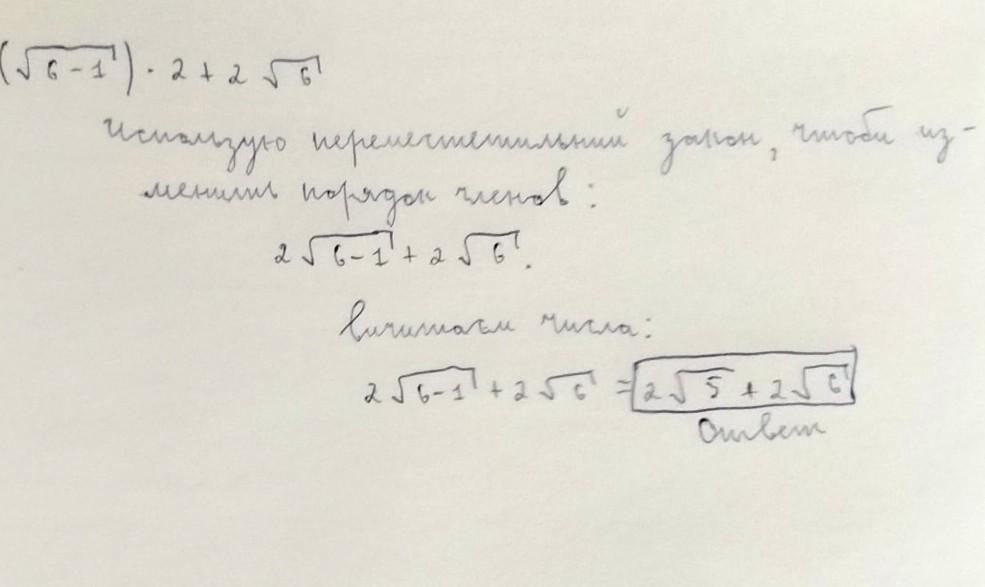 (√6-1) · 2 + 2 √6
Использую переместительний закон, чтоби из-
менить порядок членов:
2 √6-1 + 2 √6.
Вичитаем числа:
2 √6-1 + 2 √6 = 2 √5 + 2 √6
Ответ